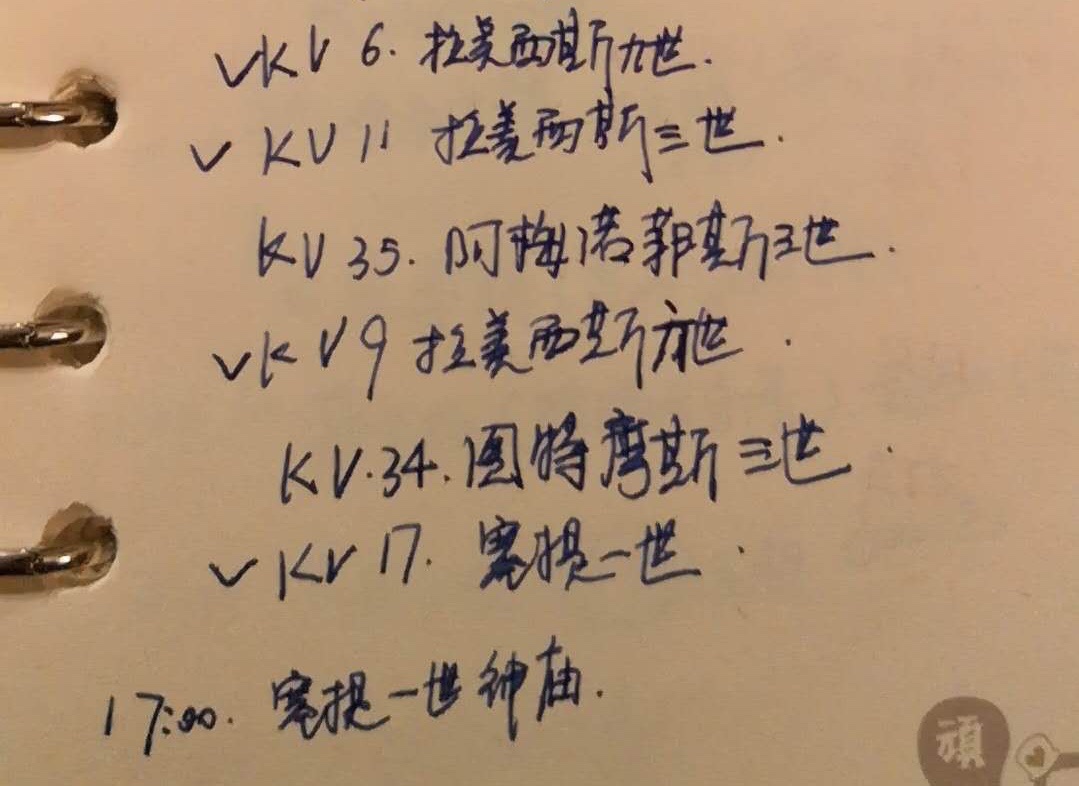 ✓KV 6. 拉美西斯九世.
✓ KV 11 拉美西斯三世.
KV 35. 阿梅诺菲斯三世.
✓KV 9 拉美西斯六世.
KV.34. 图特摩斯三世.
✓ KV 17. 塞提一世.
17:00. 塞提一世神庙.
頑